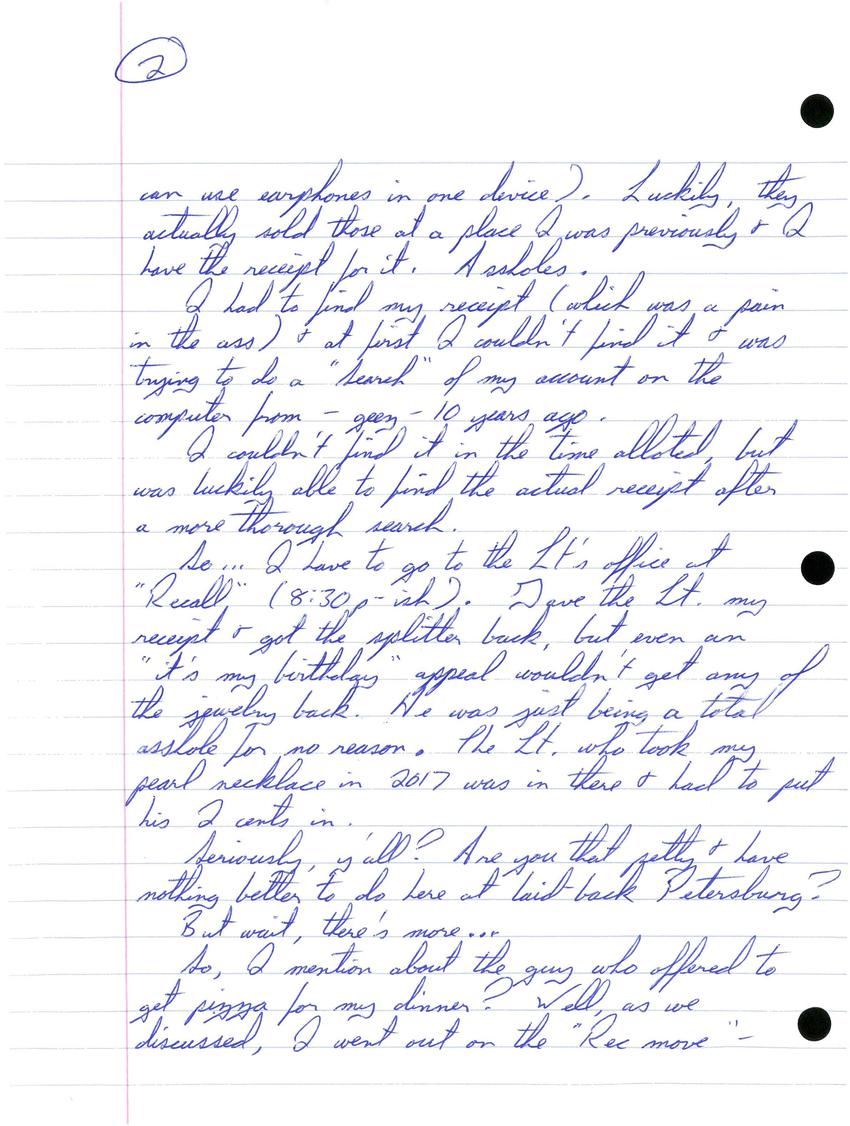 2
can use earphones in one device). Luckily, they
actually sold those at a place I was previously & I
have the receipt for it. Assholes.
I had to find my receipt (which was a pain
in the ass) & at first I couldn't find it & was
trying to do a "search" of my account on the
computer from - geez - 10 years ago.
I couldn't find it in the time alloted, but
was luckily able to find the actual receipt after
a more thorough search.
So... I have to go to the Lt's office at
"Recall" (8:30p-ish). Gave the Lt. my
receipt & got the splitter back, but even an
"it's my birthday" appeal wouldn't get any of
the jewelry back. He was just being a total
asshole for no reason. The Lt. who took my
pearl necklace in 2017 was in there & had to put
his 2 cents in.
Seriously, y'all? Are you that petty & have
nothing better to do here at laid-back Petersburg?
But wait, there's more...
So, I mention about the guy who offered to
get pizza for my dinner? Well, as we
discussed, I went out on the "Rec move" -